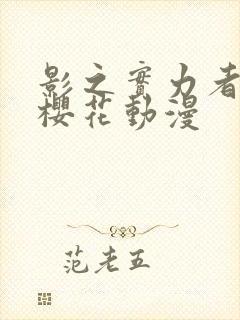 影之實力者
櫻花動漫
范老五